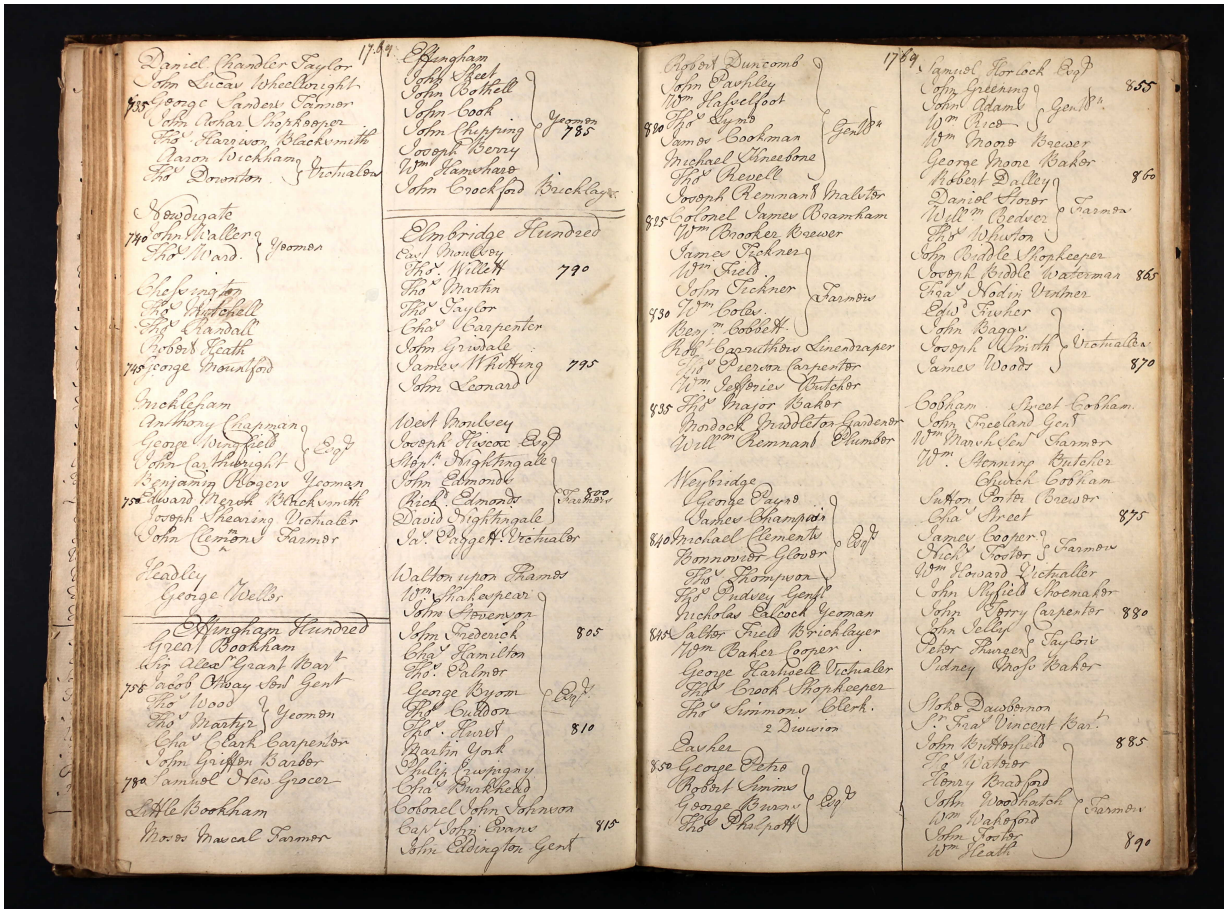 1769
Daniel Chandler Taylor
John Lucas Wheelwright
735 George Sanders Tanner
John Shopkeeper
Thos Harrison Blacksmith
Aaron Wickham
Thos Downton } Victualers
Newdigate
740 John Waller
Thos Ward } Yeomen
Chessington
Thos Mitchell
Thos Randall
Robert Heath
745 George Mountford
Mickleham
Anthony Chapman
George Wingfield
John Carthwright } Esqrs
Benjamin Rogers Yeoman
750 Edward Blacksmith
Joseph Shearing Victualer
John Clemons Farmer
Headley
George Weller
Effingham Hundred
Great Bookham
Sir Alexr Grant Bart
755 Jacob Otway Senr Gent
Thos Wood
Thos Martyr } Yeomen
Chas Clark Carpenter
John Griffen Barber
780 Samuel New Grocer
Little Bookham
Moses Mascal Farmer
Effingham
John Skeet
John Bothell
John Cook
John Chipping } Yeomen 785
Joseph Berry
Wm Hamshare
John Crockford Bricklayr
Elmbridge Hundred
East Moulsey
Thos Willett 790
Thos Martin
Thos Taylor
Chas Carpenter
John Grisdale
James Whitting 795
John Leonard
West Moulsey
Joseph Hiscox Esqr
Stepn Nightingale
John Edmonds
Richd Edmonds } Farmers 800
David Nightingale
Jas Padgett Victualer
Walton upon Thames
Wm Shakespear
John Stevenson
John Frederick 805
Chas Hamilton
Thos Palmer
George Byom } Esqrs
Thos Cuddon
Thos Hurst 810
Martin York
Philip Crespigny
Chas Burkhead
Colonel John Johnson
Capt John Evans 815
John Eddington Gent
1769
Robert Duncomb
John Pashley
Wm Hasselfoot
820 Thos Lyme
James Cookman } Gentn
Michael Kneebone
Thos Revell
Joseph Remnant Malster
825 Colonel James Bramham
Wm Brooker Brewer
James Tickner
Wm Field
John Tickner } Farmers
830 Wm Coles
Benjm Cobbett
Robt Carruthers Linendraper
Thos Pierson Carpenter
Wm Jefferies Butcher
835 Thos Major Baker
Mordock Middleton Gardener
Willm Remnant Plumber
Weybridge
George Payne
James Champion
840 Michael Clements } Esqrs
Bonnovier Glover
Thos Thompson
Thos Pudsey Gent
Nicholas Palcock Yeoman
845 Salter Field Bricklayer
Wm Baker Cooper
George Hartwell Victualer
Thos Crook Shopkeeper
Thos Simmons Clerk.
2 Division
Easher
850 George Petre
Robert Simms
George Burns } Esqrs
Thos Philpott
Samuel Horlock Esqr
John Greening 855
John Adams } Gentn
Wm Rice
Wm Moore Brewer
George Moore Baker
Robert Dalley 860
Daniel Storer
Willm Bedser } Farmers
Thos Whitton
John Biddle Shopkeeper
Joseph Biddle Waterman 865
Fras Nodin Vintner
Edwd Fisher
John Baggs
Joseph Smith } Victualers
James Woods 870
Cobham Street Cobham.
John Freeland Gent
Wm Marsh Senr Farmer
Wm Stonning Butcher
Church Cobham
Sutton Porter Brewer
Chas Street 875
James Cooper
Nichs Foster } Farmers
Wm Howard Victualler
John Slyfield Shoemaker
John Terry Carpenter 880
John Jelly
Peter Thurger } Taylors
Sidney Moss Baker
Stoke Dawbernon
Sr Fras Vincent Bart
John Butterfield 885
Thos Wateier
Henry Bradford
John Woodhatch } Farmers
Wm Wakeford
John Foster
Wm Heath 890